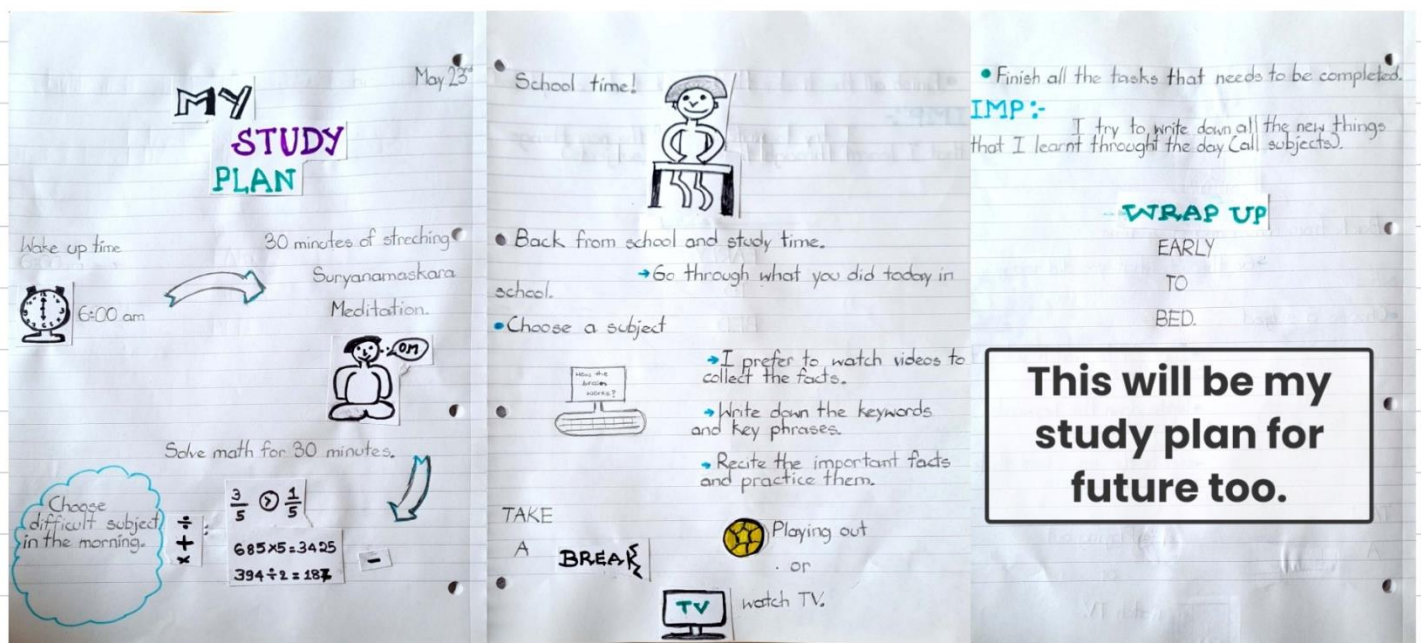 May 23rd
MY
STUDY
PLAN
Wake up time
6:00 am
30 minutes of streching
Suryanamaskara
Meditation.
OM
Solve math for 30 minutes.
Choose
difficult subject
in the morning.
÷
+
×
3/5 > 1/5
685×5=3425
394÷2=187
-
School time!
• Back from school and study time.
→Go through what you did today in
school.
• Choose a subject
How the
brain
works?
→I prefer to watch videos to
collect the facts.
→Write down the keywords
and key phrases.
→Recite the important facts
and practice them.
TAKE
A
BREAK
Playing out
. or
TV
watch TV.
• Finish all the tasks that needs to be completed.
IMP:-
I try to write down all the new things
that I learnt throught the day (all subjects).
WRAP UP
EARLY
TO
BED.
This will be my
study plan for
future too.